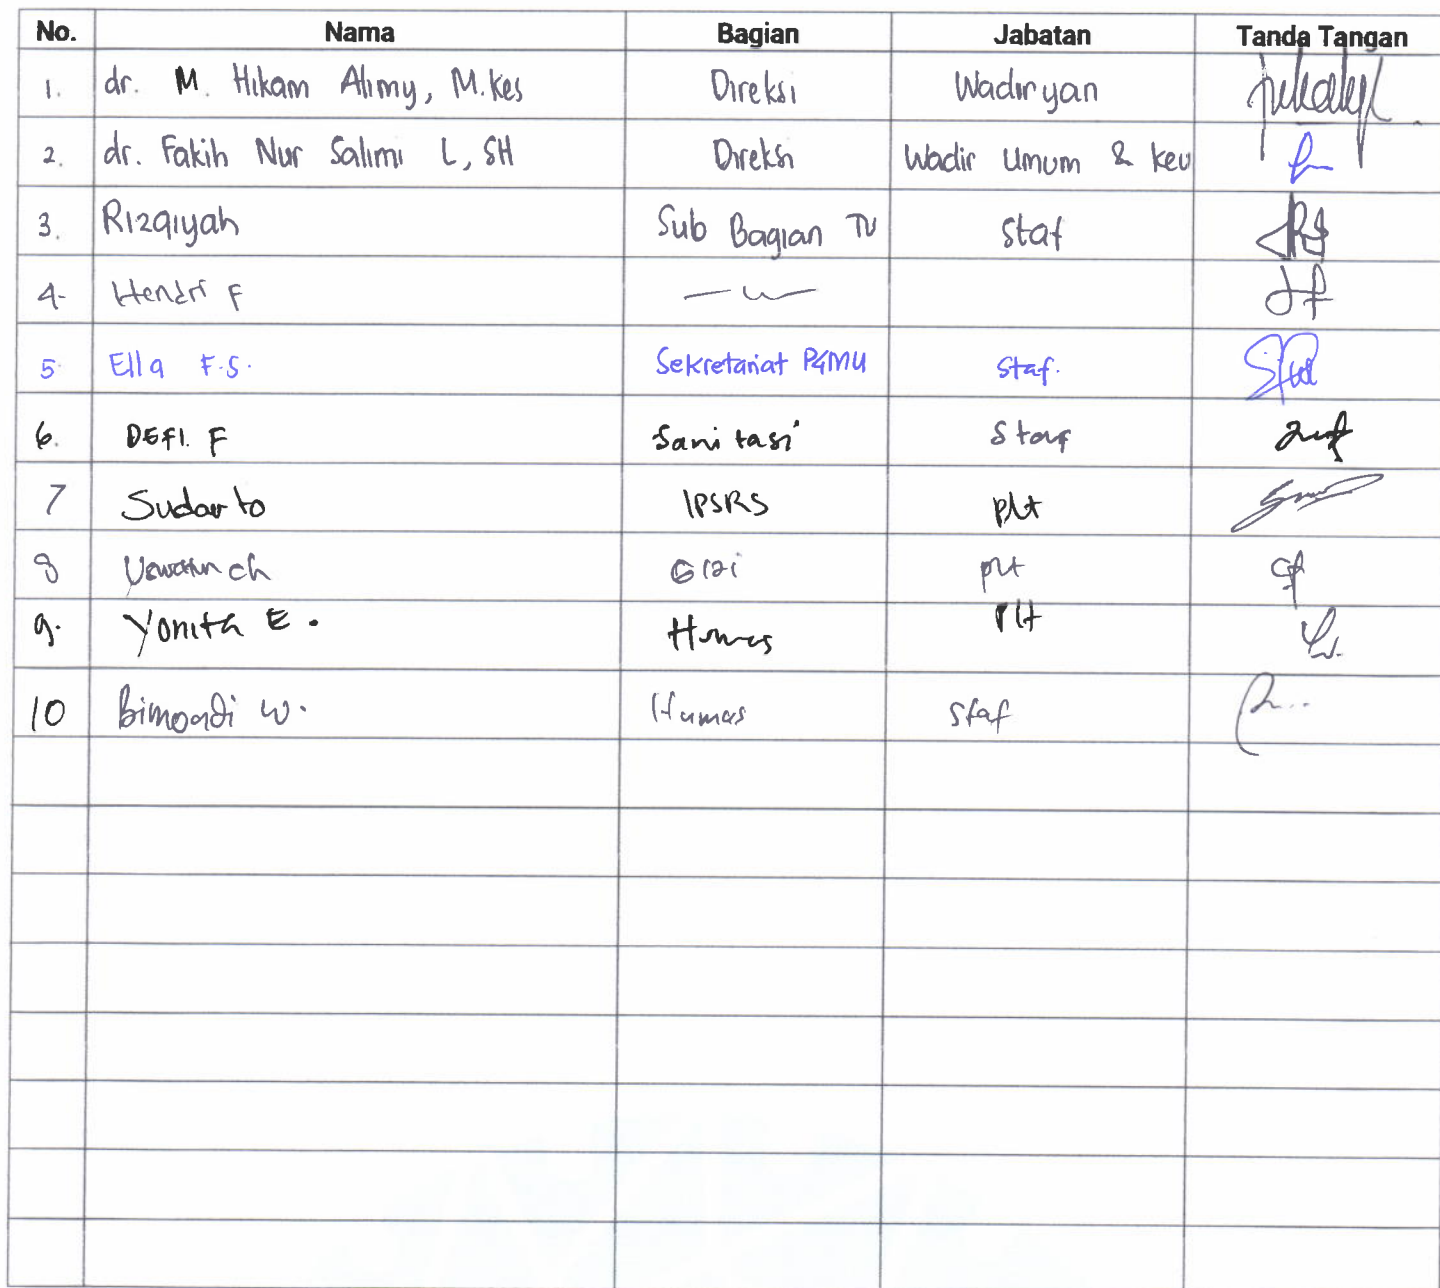 No. Nama Bagian Jabatan Tanda Tangan
1. dr. M. Hikam Alimy, M.Kes Direksi Wadiryan
2. dr. Fakih Nur Salimi L, SH Direksi Wadir Umum & keu
3. Rizqiyah Sub Bagian TU Staf
4. Hendri F
5. Ella F.S. Sekretariat P4MU Staf.
6. DEFI. F Sanitasi Staf
7 Sudarto IPSRS plt
8 Gizi plt
9. Yonita E. Humas Plt
10 Bimoadi W. Humas Staf